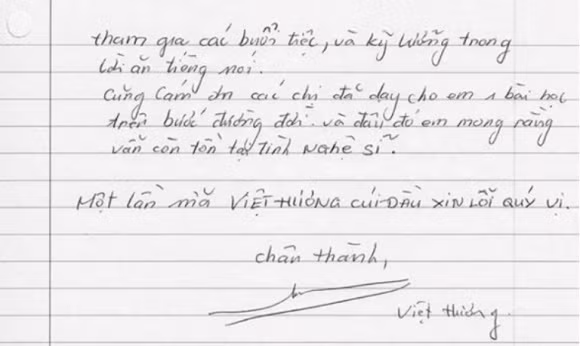 tham gia các buổi tiệc, và kỹ lưỡng trong
lời ăn tiếng nói.
Cũng Cám ơn các chị đã dạy cho em 1 bài học
trên bước đường đời. và đâu đó em mong rằng
vẫn còn tồn tại Tình Nghệ sĩ.
Một lần nữa VIỆT HƯƠNG CÚI ĐẦU XIN LỖI QUÝ VỊ.
chân thành,
Việt Hương